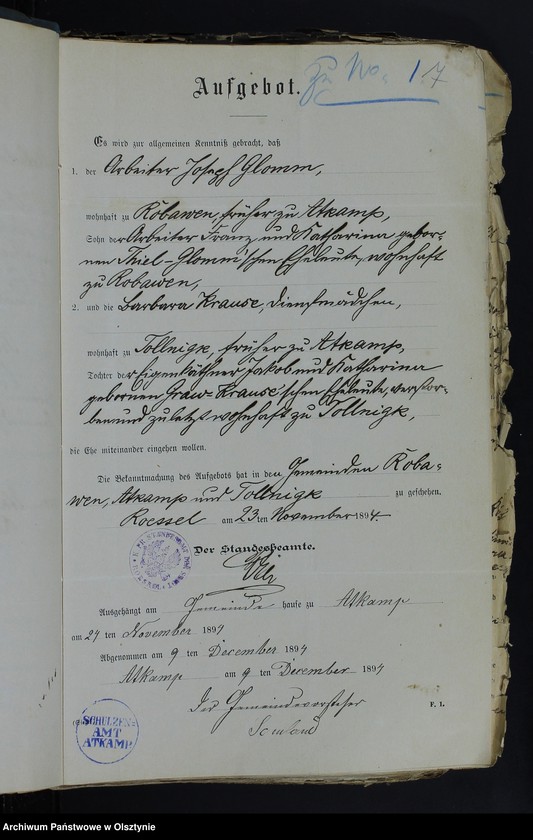 Zu No. 17
Aufgebot.
Es wird zur allgemeinen Kenntniß gebracht, daß
1. der Arbeiter Joseph Glomm,
wohnhaft zu Robawen, früher zu Atkamp,
Sohn der Arbeiter Franz und Katharina gebor-
nen Thiel-Glomm'schen Eheleute, wohnhaft
zu Robawen,
2. und die Barbara Krause, Dienstmädchen,
wohnhaft zu Tollnigk, früher zu Atkamp,
Tochter der Eigenkäthner Jakob und Katharina
gebornen Graw-Krause'schen Eheleute, verstor-
ben und zuletzt wohnhaft zu Tollnigk,
die Ehe miteinander eingehen wollen.
Die Bekanntmachung des Aufgebots hat in den Gemeinden Roba-
wen, Atkamp und Tollnigk zu geschehen.
Roessel am 23. ten November 1894.
Der Standesbeamte.
Ausgehängt am Gemeinde hause zu Atkamp
am 24 ten November 1894
Abgenommen am 9 ten December 1894
Atkamp am 9 ten December 1894
Der Gemeindevorsteher
F. I.
SCHULZEN-
AMT
ATKAMP
Archiwum Państwowe w Olsztynie